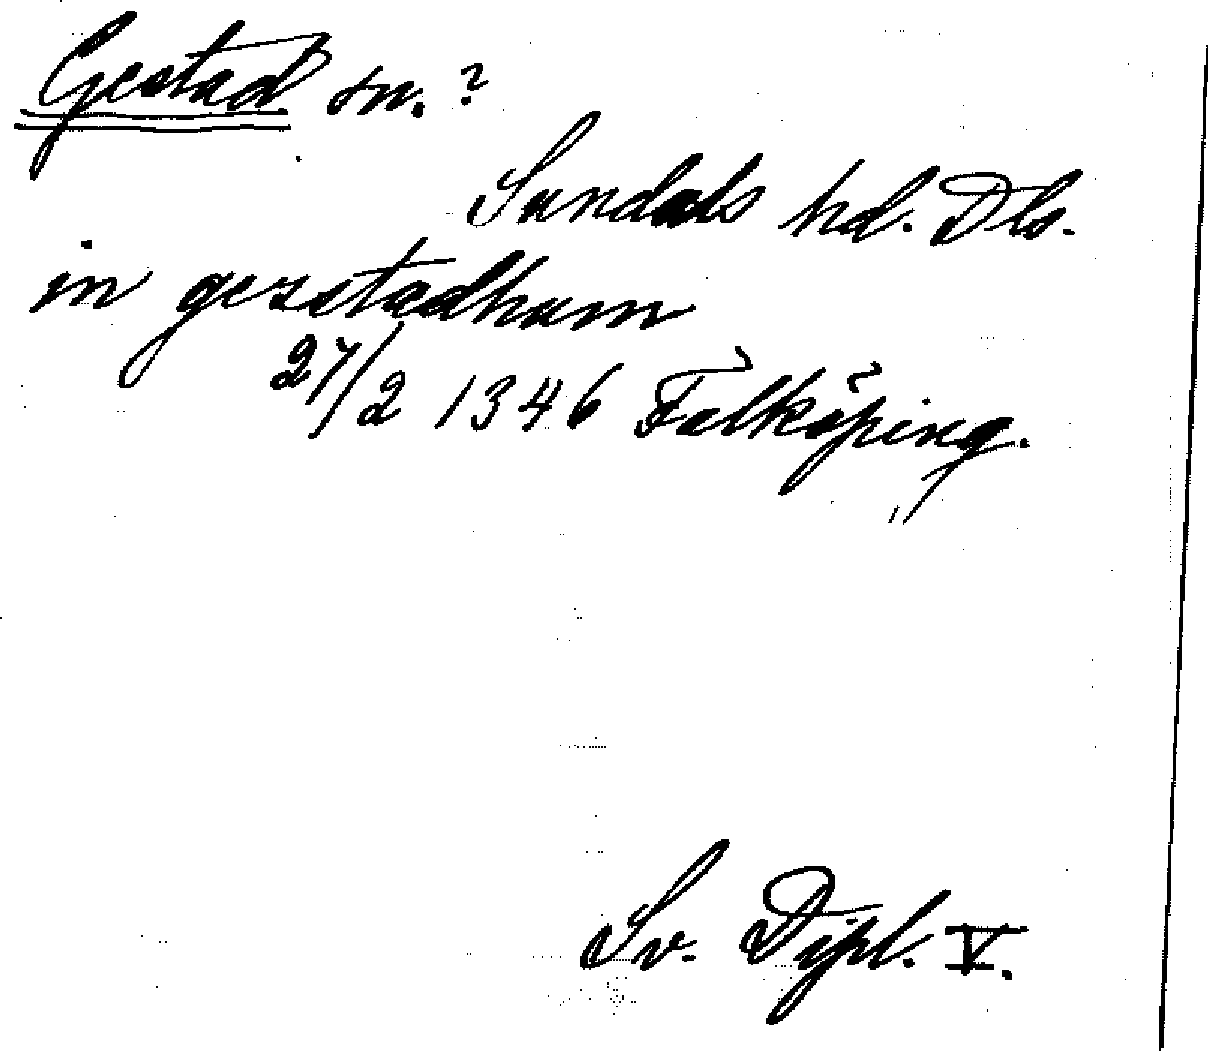 Gestad sn.?
Sundals hd. Dls.
in gerstadhum
27/2 1346 Falköping.
Sv. Dipl. V.